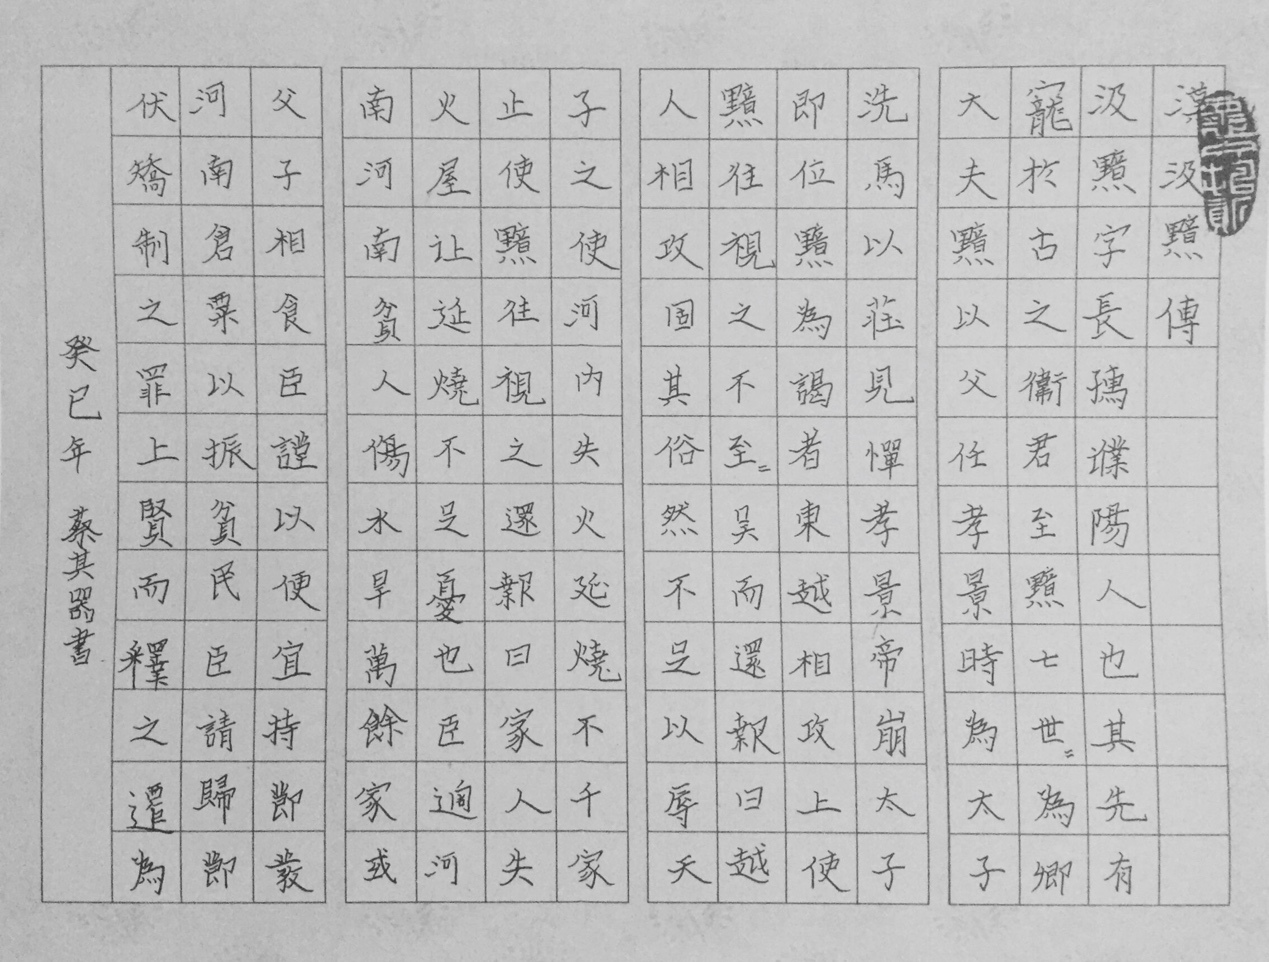 漢汲黯傳
汲黯字長孺濮陽人也其先有
寵於古之衞君至黯七世〻為卿
大夫黯以父任孝景時為太子
洗馬以莊見憚孝景帝崩太子
即位黯為謁者東越相攻上使
黯往視之不至〻吳而還報曰越
人相攻固其俗然不足以辱天
子之使河内失火延燒不千家
止使黯往視之還報曰家人失
火屋让延燒不足憂也臣過河
南河南貧人傷水旱萬餘家或
父子相食臣謹以便宜持節發
河南倉粟以振貧民臣請歸節
伏矯制之罪上賢而釋之遷為
癸巳年 蔡其器書